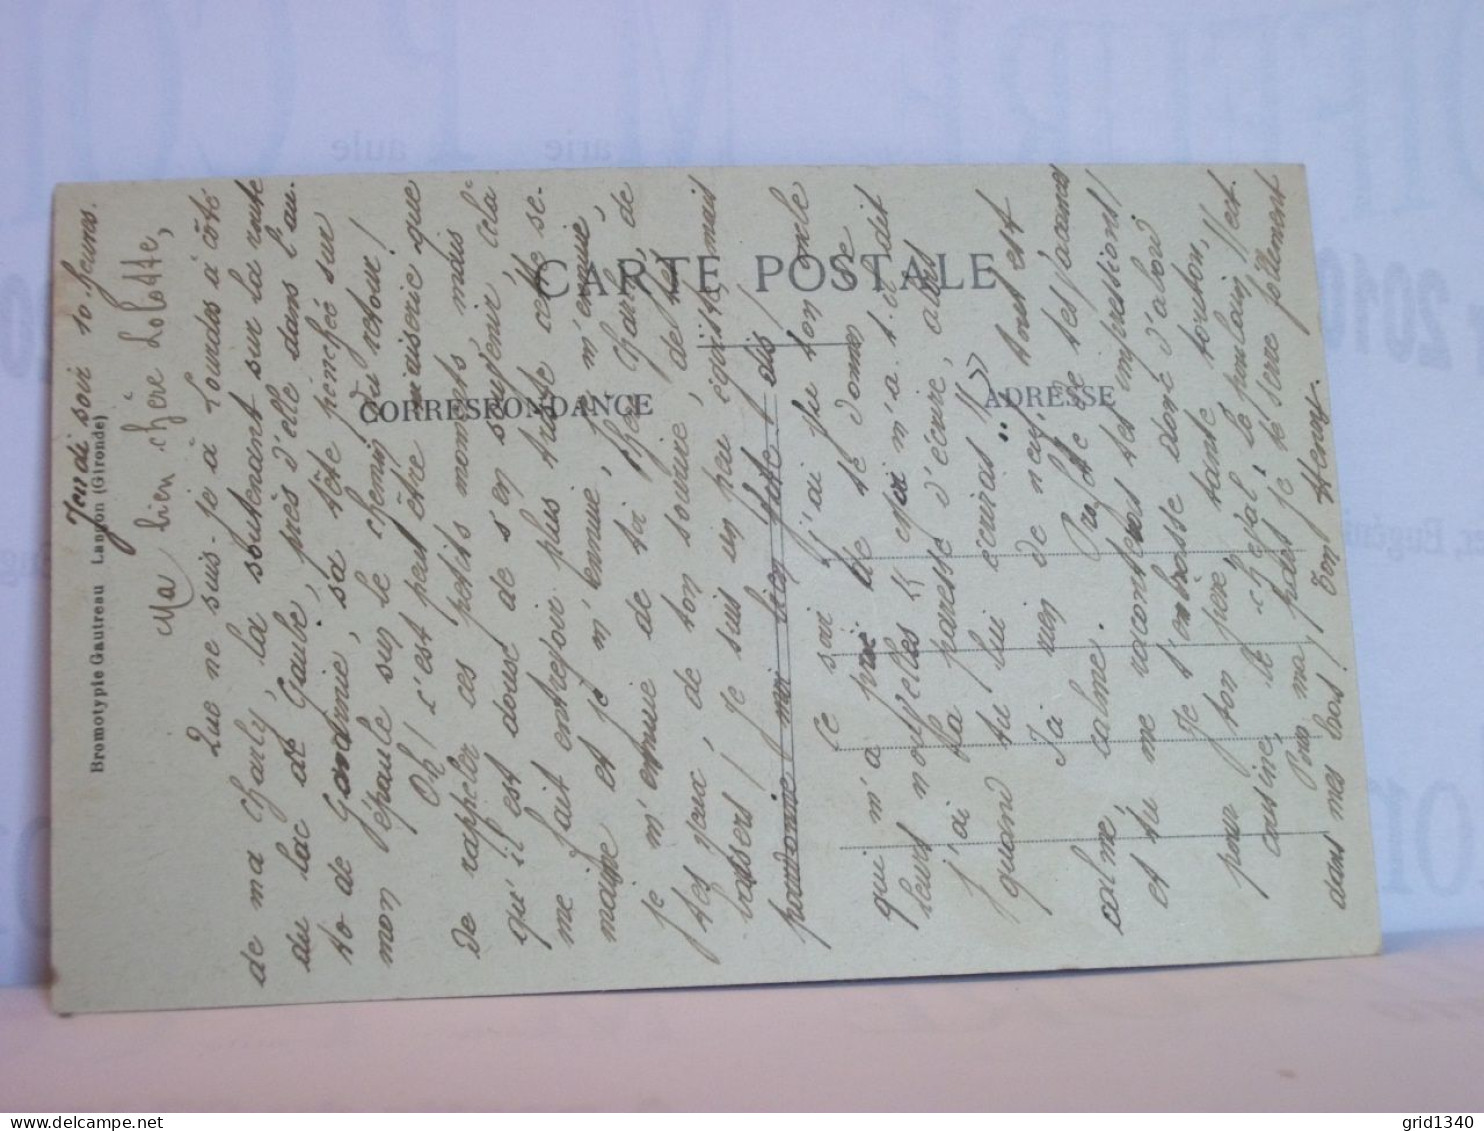 Jeudi soir 10 heures.
Ma bien chère Lolotte,
Que ne suis-je à Lourdes à côté
de ma Charly, la soutenant sur la route
du lac de Gaube, près d'elle dans l'au-
to de Gavarnie, sa tête penchée sur
mon épaule sur le chemin du retour !
Oh ! c'est peut être niaiserie que
de rappeler ces petits moments, mais
qu'il est doux de s'en souvenir. Cela
me fait entrevoir plus triste cette se-
maine et je m'ennuie, m'ennuie,
je m'ennuie de toi chère Charly, de
tes yeux, de ton sourire, de tes
baisers ! Je suis un peu égoïste mais
pardonne moi bien vite dis
Ce soir j'ai vu ton oncle
qui m'a prié de te donner de
leurs nouvelles " et puis m'a-t-il dit
j'ai la paresse d'écrire, alors
quand tu lui écriras !! "
J'ai rien de neuf, tout est
calme, calme. Profite de tes vacances
et tu me raconteras tes impressions !
Je t'embrasse donc d'abord
pour ton père, tante, touton,
cousine, le cheval, le poulain, etc.
Puis ma, puis je te serre follement
dans mes bras ! Ton Henry.
CARTE POSTALE
CORRESPONDANCE
ADRESSE
Bromotypie Gautreau Langon (Gironde)
arie
aule
2010
er, Eugéni
grid1340